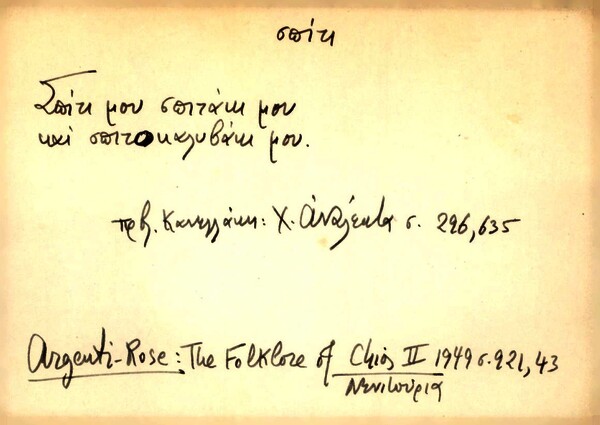 σπίτι
Σπίτι μου σπιτάκι μου
καί σπιτοκαλυβάκι μου.
πρβ. Κανελλάκη: Χ. Ἀνάλεκτα σ. 296,635
Argenti-Rose: The Folklore of Chios II 1949 σ. 921, 43
Νενητούρια